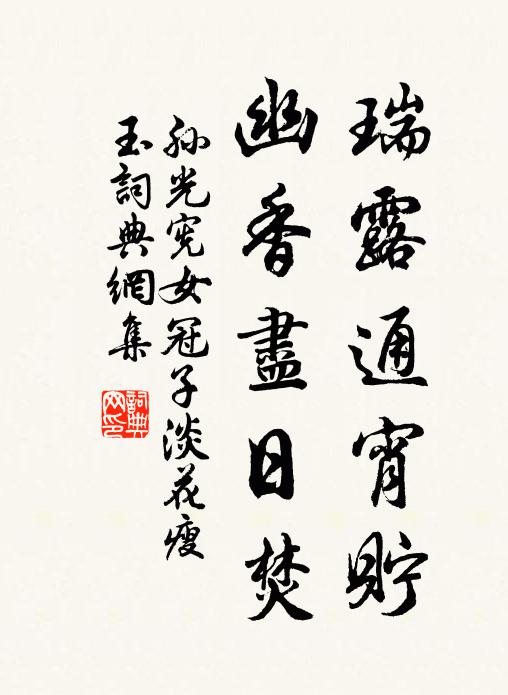 瑞露通宵貯
幽香盡日焚
孫光憲女冠子淡花瘦
玉詞典網集
詞典
网印